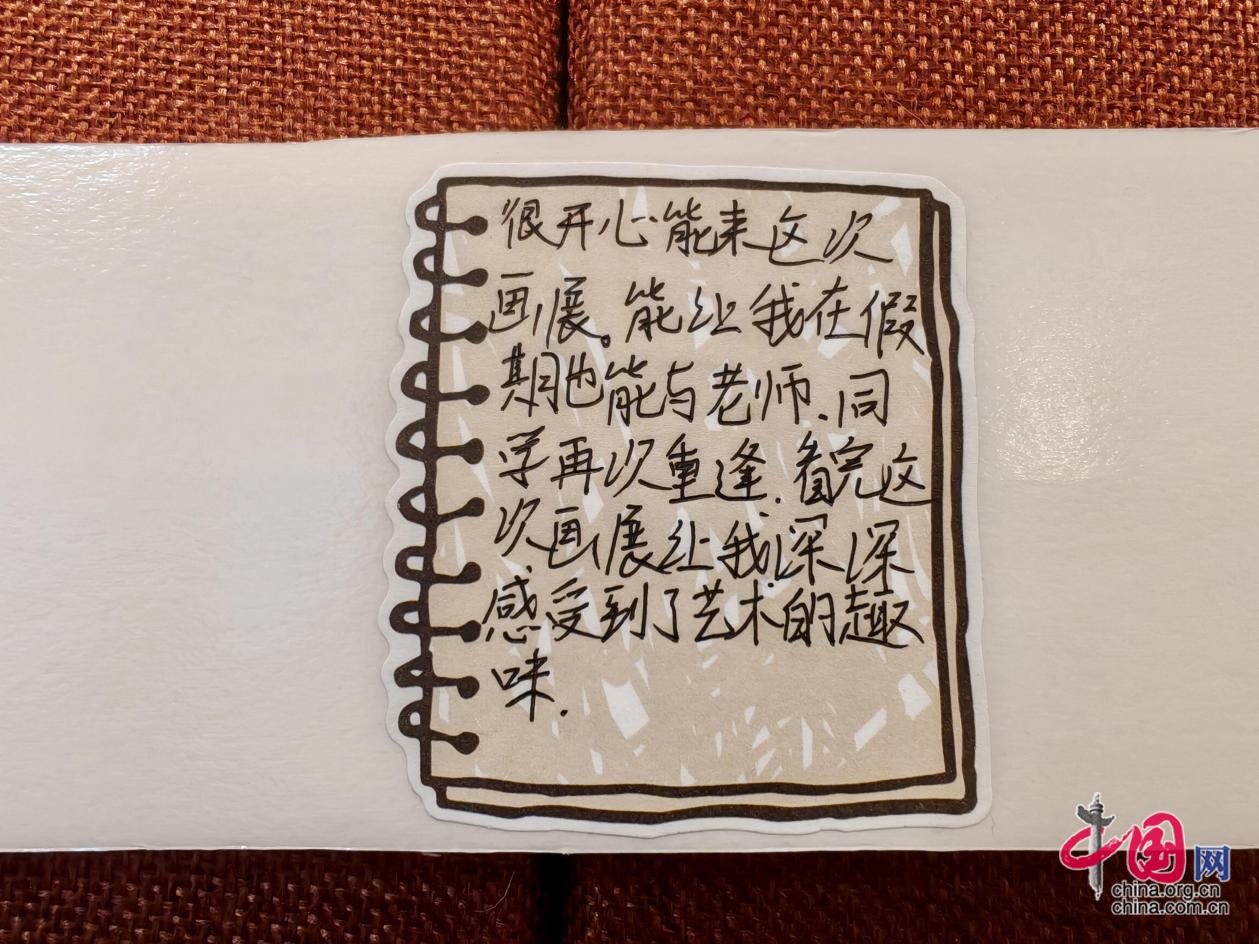 很开心能来这次
画展。能让我在假
期也能与老师.同
学再次重逢.看完这
次画展让我深深
感受到了艺术的趣
味.
中国网
china.org.cn
china.com.cn